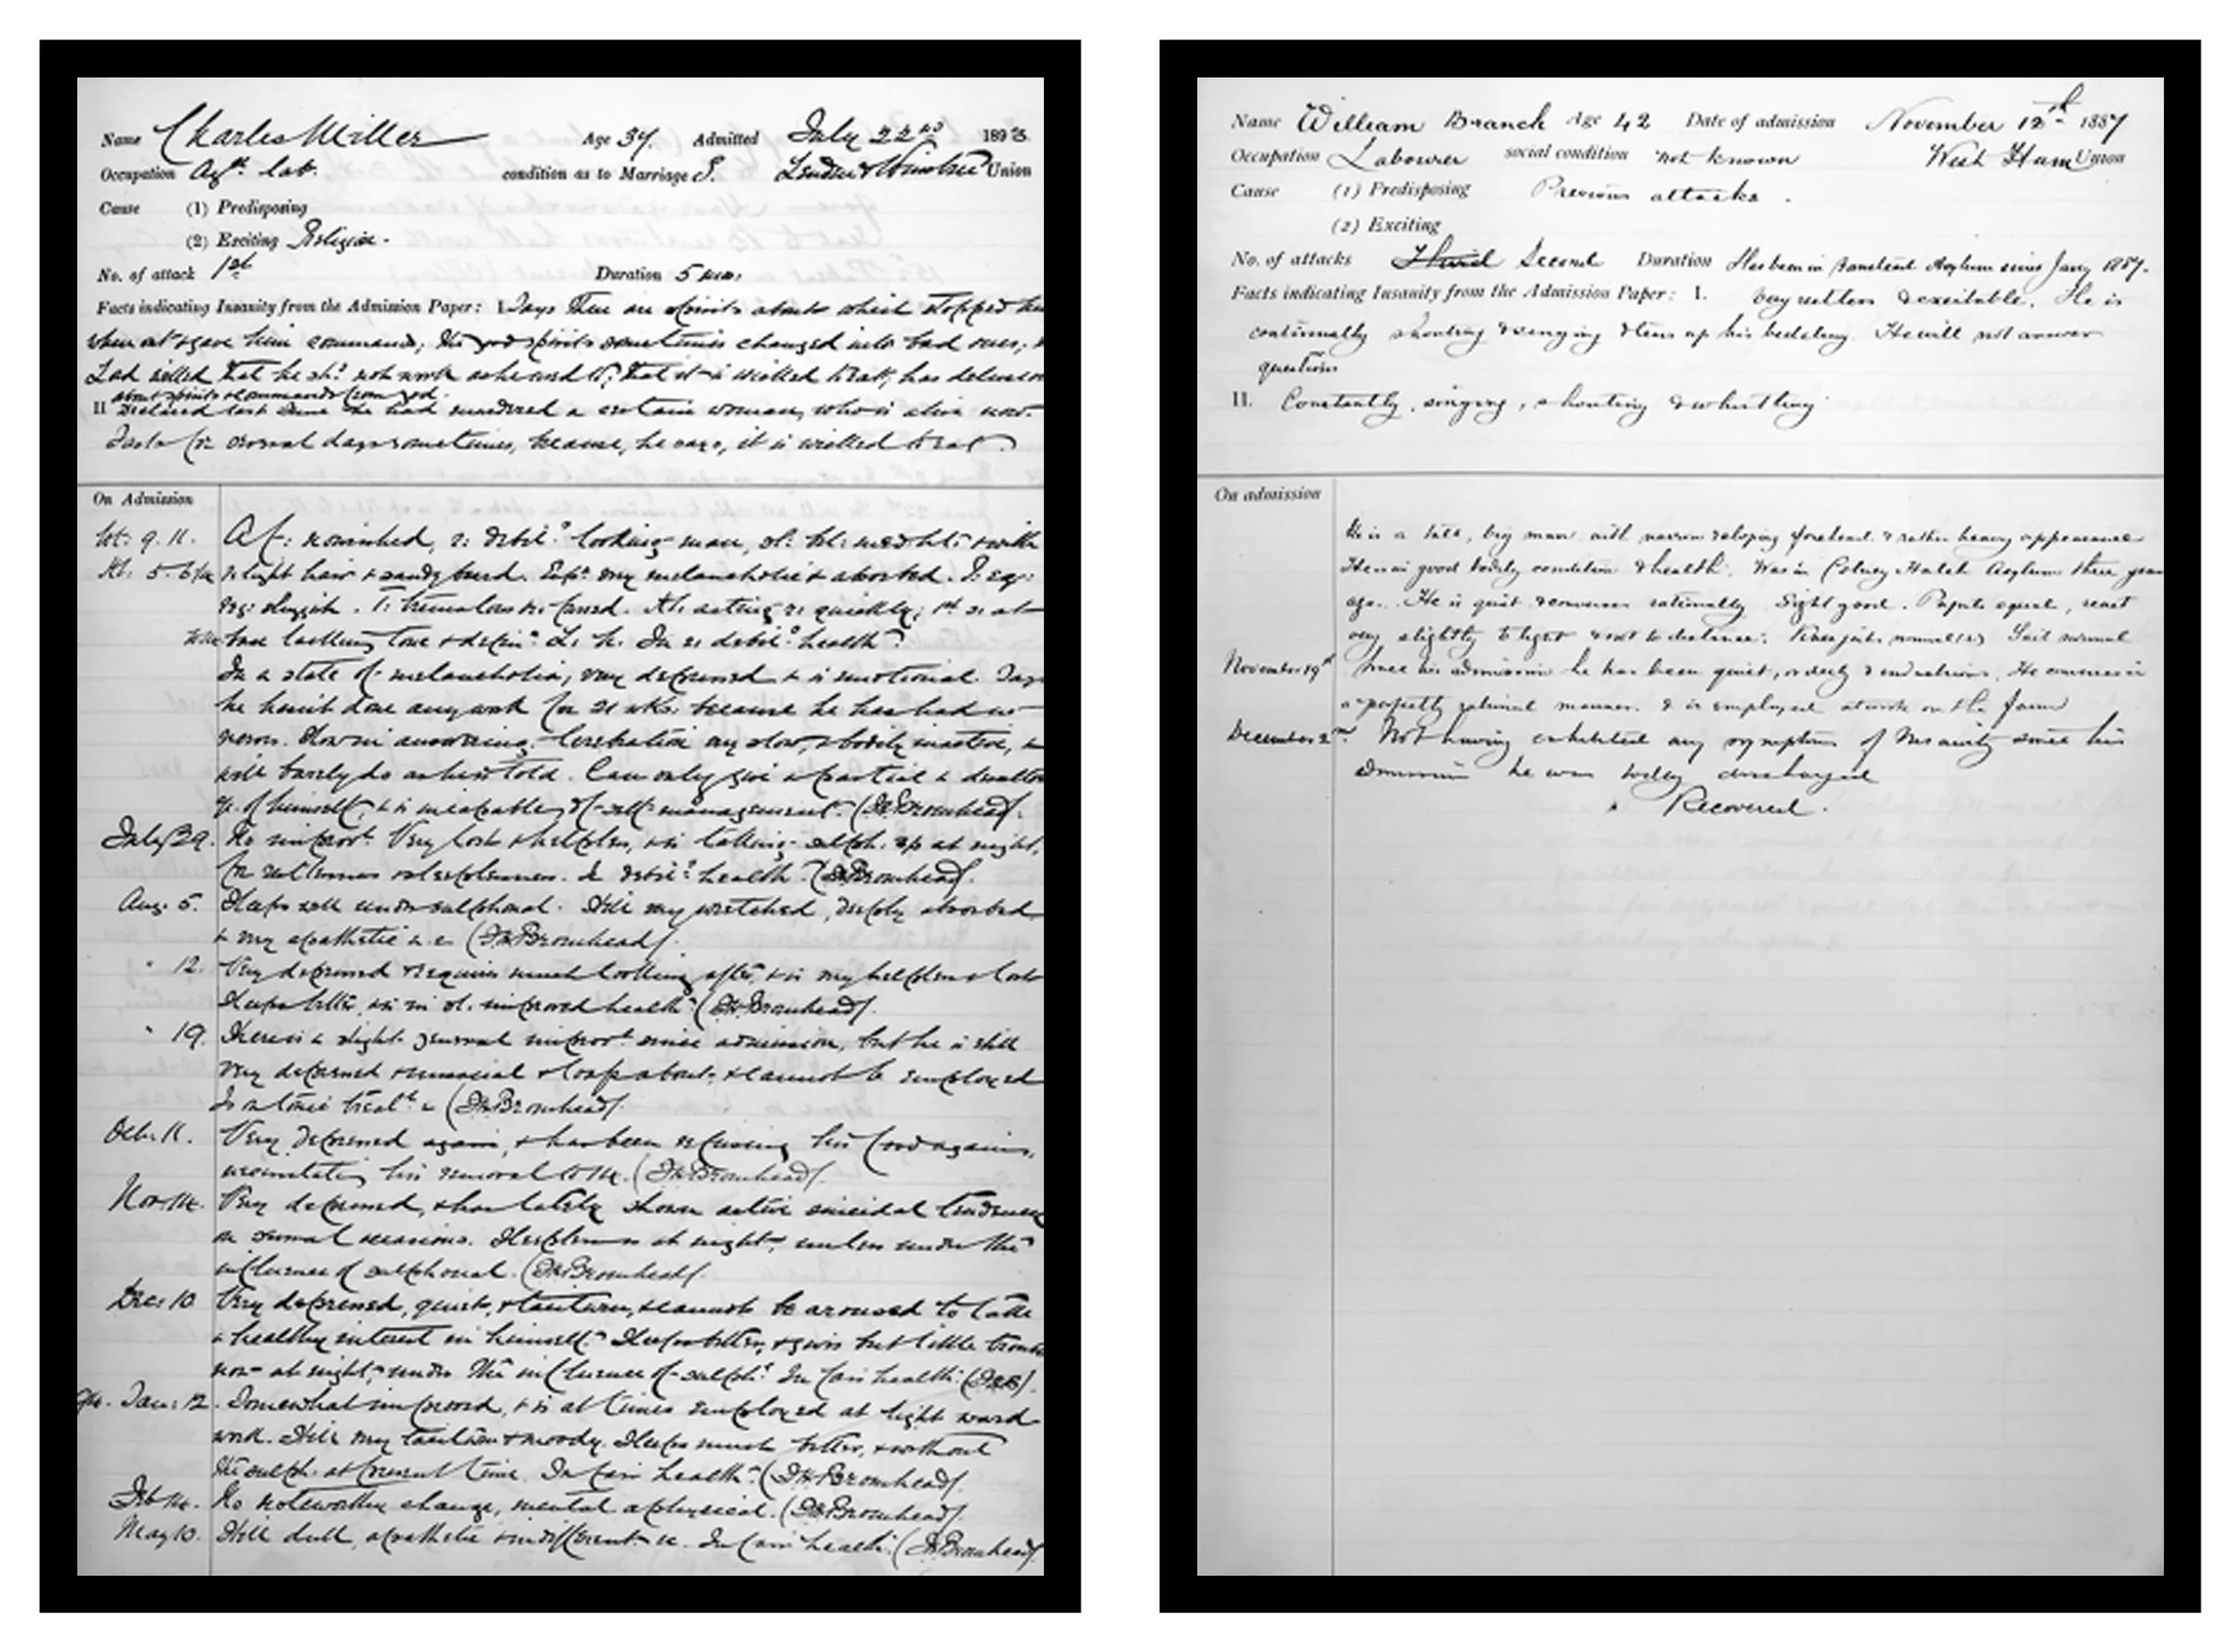 Name Charles Miller Age 37. Admitted July 22nd 1893.
Occupation Agrl. lab. condition as to Marriage S. Union
Cause (1) Predisposing
(2) Exciting Religion.
No. of attack 1st Duration 5 mos.
Facts indicating Insanity from the Admission Paper: I Says there are spirits about which stopped
when out & gave him commands; the good spirits sometimes changed into bad ones;
God willed that he shd. not work as he used to; that it is wicked to eat; has
about spirits & commands from god.
II Declared last June he had murdered a certain woman, who is alive now.
Fasts for several days sometimes, because, he says, it is wicked to eat
On Admission
Wt: 9. 11. A f: nourished, looking man,
Ht. 5. light hair & sandy beard. Expn. very melancholic & absorbed. P. eq:
sluggish. T: tremulous furred. Ht. acting quickly; 1st
base lacking tone & health.
In a state of melancholia, very depressed & is emotional. Says
he hasn't done any work for wks. because he has had no
Slow in answering. Cerebration very slow, & bodily inactive, &
will barely do as he is told. Can only give a partial &
of himself, & is incapable of self-management. (Bromhead).
July 29. No improvt. Very lost & helpless, & is taking sulph. at night,
for restlessness & sleeplessness. In health. (Bromhead).
Aug. 5. Sleeps well under sulphonal. Still very wretched, deeply absorbed
& very apathetic (Bromhead).
" 12. Very depressed & requires much looking after, & is very helpless & lost
Sleeps better, & is in improved health (Bromhead).
" 19. There is a slight general improvt. since admission, but he is still
very depressed & loafs about, & cannot be employed
Is on tonic treatt. (Bromhead).
Octr. 11. Very depressed again, & has been refusing his food again,
necessitating his removal to (Bromhead).
Nov: 14. Very depressed, & has lately shown active suicidal tendency
on several occasions. Sleepless at night, unless under the
influence of sulphonal. (Bromhead).
Dec: 10 Very depressed, quiet, & taciturn, & cannot be aroused to take
a healthy interest in himself. Sleeps better, & gives but little trouble
now at night, under the influence of sulphl. In fair health.
Jan: 12. Somewhat improved, & is at times employed at light ward
work. Still very taciturn & moody. Sleeps much better, & without
the sulph. at present time. In fair health. (Bromhead).
Feb 14. No noteworthy change, mental or physical. (Bromhead).
May 10. Still dull, apathetic & indifferent &c. In fair health. (Bromhead).
Name William Branch Age 42 Date of admission November 12th 1887
Occupation Labourer social condition not known West Ham Union
Cause (1) Predisposing Previous attacks.
(2) Exciting
No. of attacks Third Second Duration Has been in Banstead Asylum since Jany 1887.
Facts indicating Insanity from the Admission Paper: I. Very restless & excitable. He is
continually shouting & singing & tears up his bedding. He will not answer
questions
II. Constantly, singing, shouting & whistling
On admission
He is a tall, big man with narrow sloping forehead & rather heavy appearance
He is in good bodily condition & health. Was in Colney Hatch Asylum three years
ago. He is quiet & converses rationally. Sight good. Pupils equal, react
very slightly to light & not to distance. Knee jerks normal (2) Gait normal
November 19th Since his admission he has been quiet, orderly & industrious. He converses in
a perfectly rational manner & is employed at work on the farm
December 2nd. Not having exhibited any symptoms of Insanity since his
admission he was today discharged
Recovered.